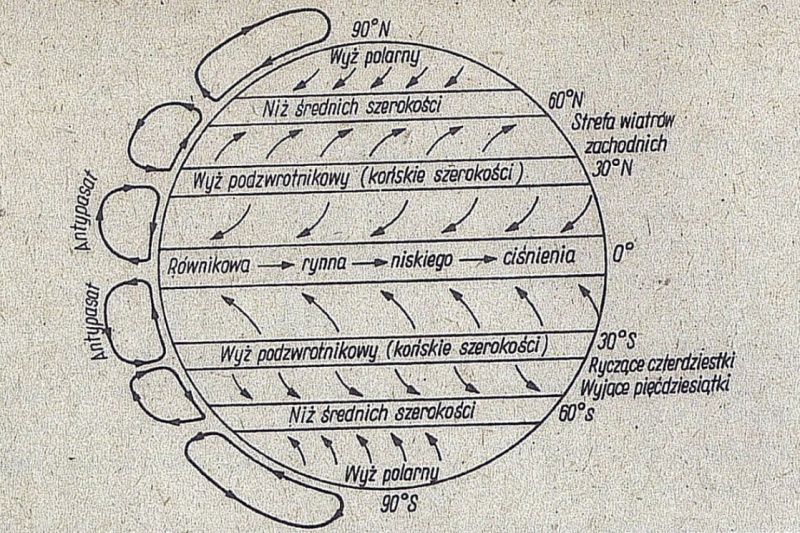 90°N
Wyż polarny
60°N
Niż średnich szerokości
Strefa wiatrów
zachodnich
30°N
Wyż podzwrotnikowy (końskie szerokości)
Antypasat
Równikowa rynna niskiego ciśnienia
0°
Antypasat
30°S
Wyż podzwrotnikowy (końskie szerokości)
Ryczące czterdziestki
Wyjące pięćdziesiątki
Niż średnich szerokości
60°s
Wyż polarny
90°S